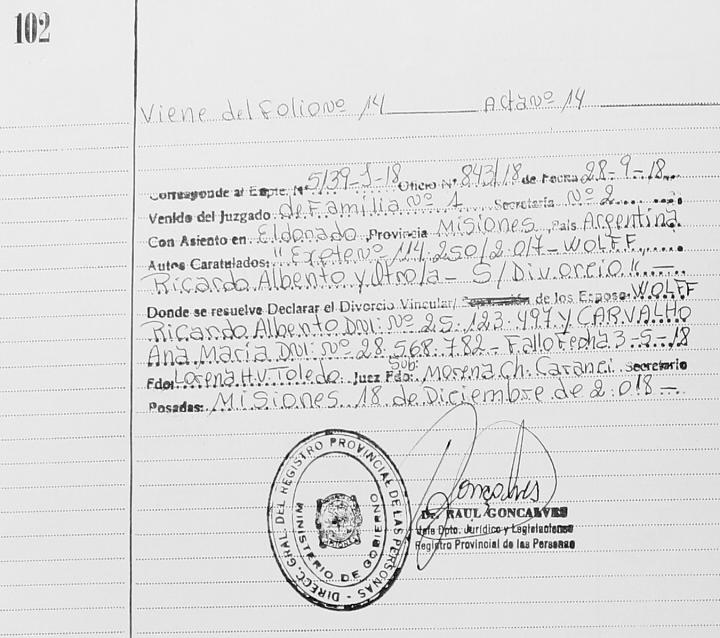 102
Viene del Folio Nº 14 Acta Nº 14
Corresponde al Expte. Nº 5139-J-18 Oficio Nº 843/18 de Fecha 28-9-18
Venido del Juzgado de Familia Nº 1 Secretaría Nº 2
Con Asiento en Eldorado Provincia Misiones País Argentina
Autos Caratulados: "Expte Nº 114.250/2.017- WOLFF
Ricardo Alberto y Otro/a - S/Divorcio" -
Donde se resuelve Declarar el Divorcio Vincular/ Separación de los Esposo: WOLFF
Ricardo Alberto DNI: Nº 25.123.497 y CARVALHO
Ana María DNI: Nº 28.568.782 - Fallo Fecha 3-5-18
Fdo: Lorena H.V. Toledo Juez Fdo: Sub: Morena Ch. Caranci Secretario
Posadas: Misiones 18 de Diciembre de 2.018 -
DIRECC. GRAL. DEL REGISTRO PROVINCIAL DE LAS PERSONAS
MINISTERIO DE GOBIERNO
Goncalves
Dr. RAUL GONCALVES
Jefe Dpto. Jurídico y Legislaciones
Registro Provincial de las Personas